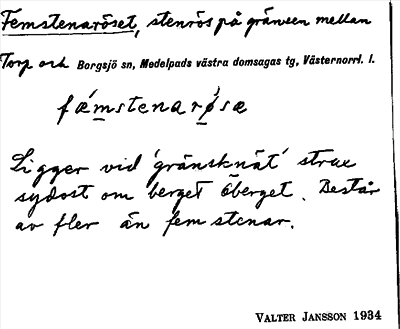 Femstenaröset, stenrös på gränsen mellan
Torp och Borgsjö sn, Medelpads västra domsagas tg, Västernorrl. l.
fǽmstenarǿsæ
Ligger vid 'gränsknät' strax
sydost om berget Öberget. Består
av fler än fem stenar.
VALTER JANSSON 1934